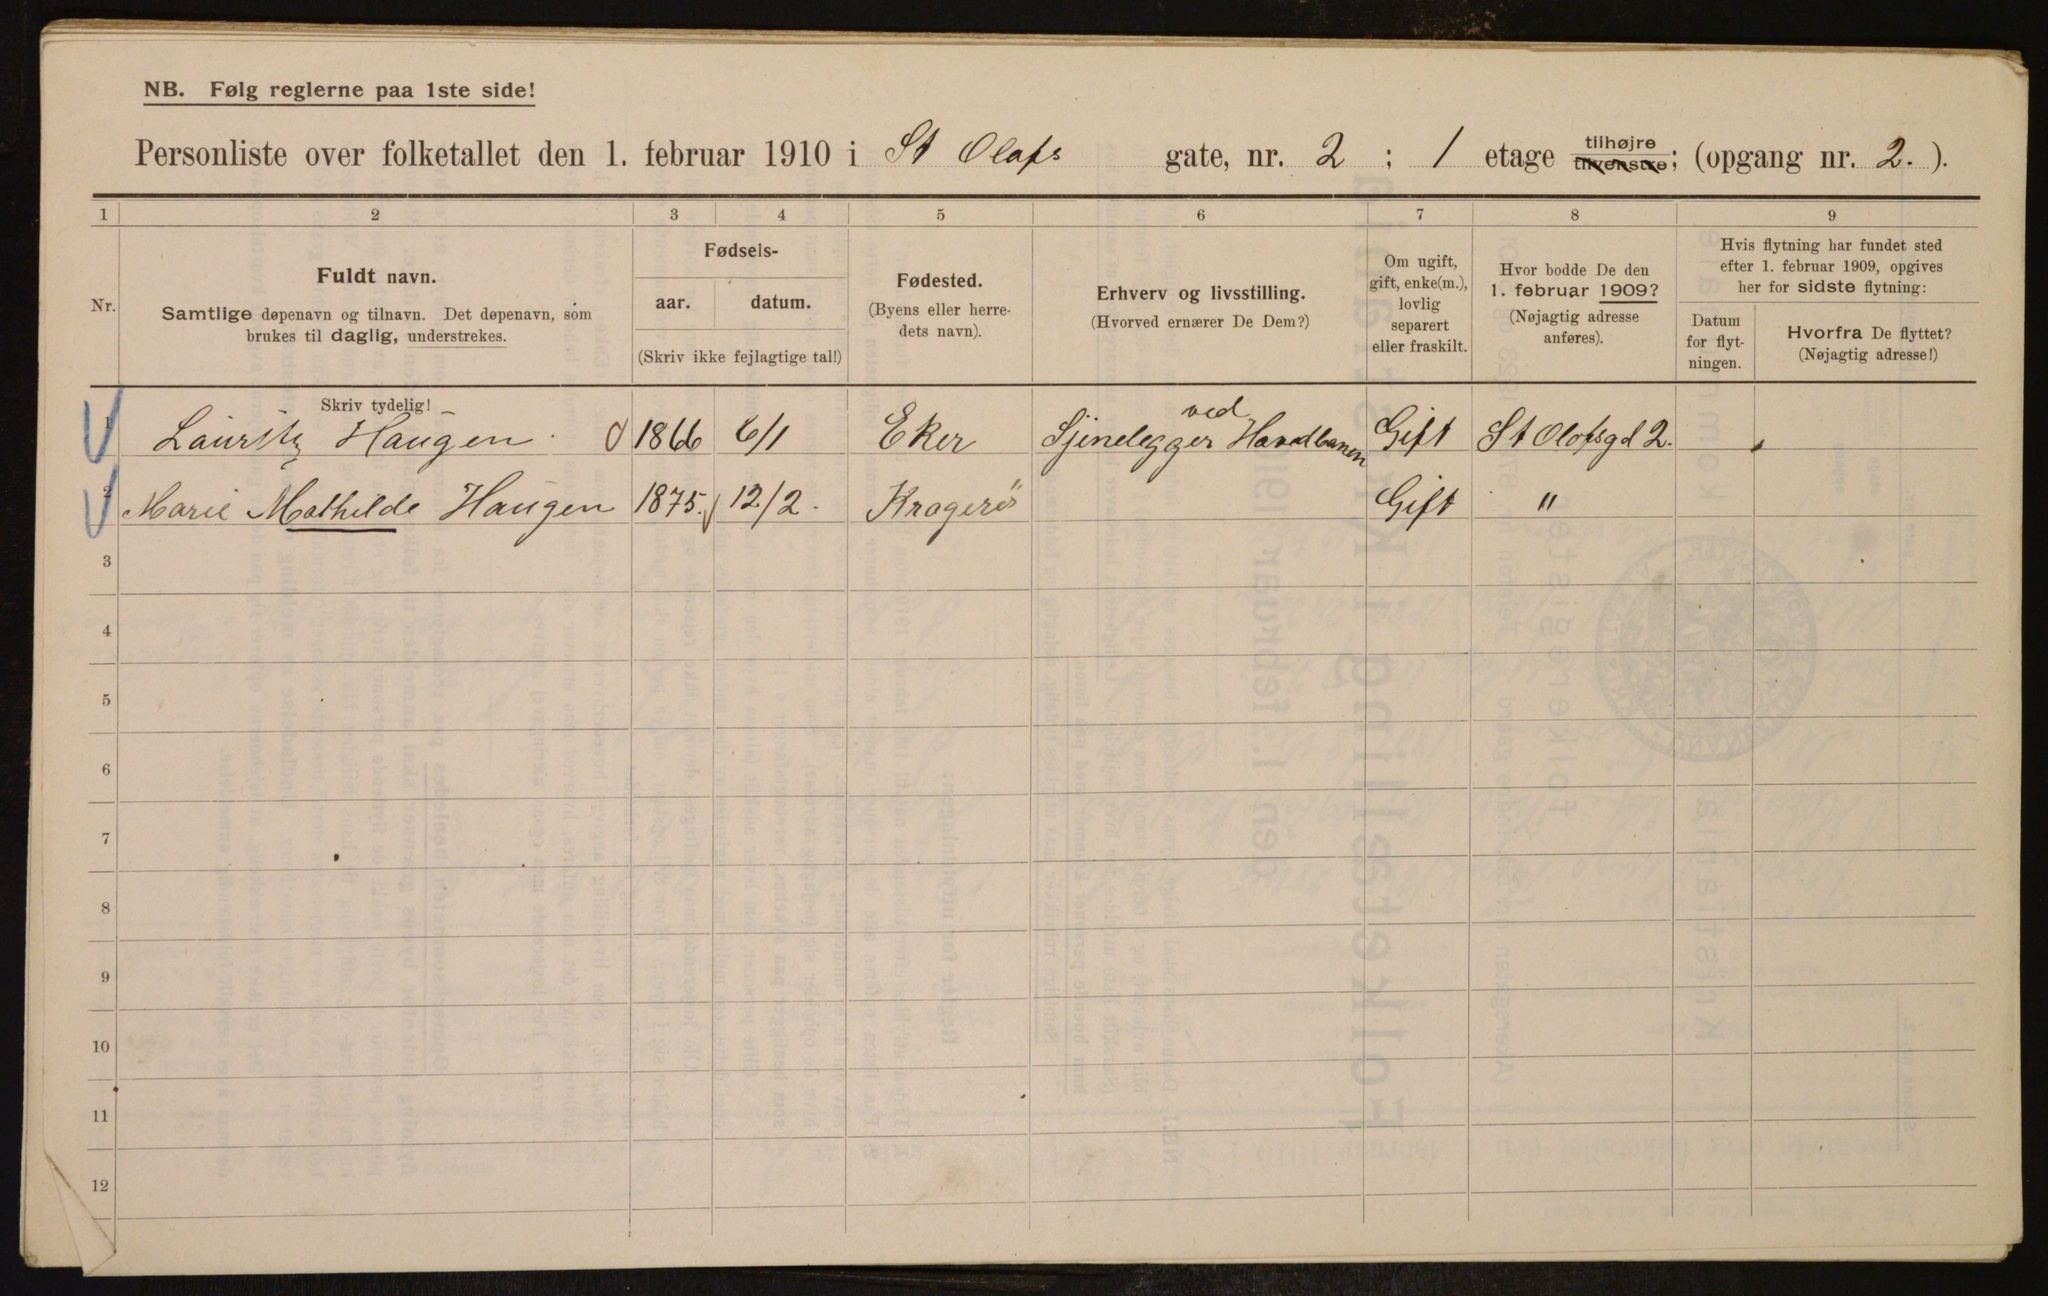 NB. Følg reglerne paa 1ste side!
Personliste over folketallet den 1. februar 1910 i St Olafs gate, nr. 2 ; 1 etage tilhøjre tilvenstre; (opgang nr. 2. ).
1 2 3 4 5 6 7 8 9
Nr.
Fuldt navn.
Samtlige døpenavn og tilnavn. Det døpenavn, som
brukes til daglig, understrekes.
Fødsels-
aar. datum.
(Skriv ikke fejlagtige tal!)
Fødested.
(Byens eller herre-
dets navn).
Erhverv og livsstilling.
(Hvorved ernærer De Dem?)
Om ugift,
gift, enke(m.),
lovlig
separert
eller fraskilt.
Hvor bodde De den
1. februar 1909?
(Nøjagtig adresse
anføres).
Hvis flytning har fundet sted
efter 1. februar 1909, opgives
her for sidste flytning:
Datum
for flyt-
ningen.
Hvorfra De flyttet?
(Nøjagtig adresse!)
Skriv tydelig!
1 Lauritz Haugen 1866 6/1 Eker Sjinelegger ved Hovedbanen Gift St Olafsgd 2.
2 Marie Mathilde Haugen 1875. 12/2. Kragerö Gift "
3
4
5
6
7
8
9
10
11
12